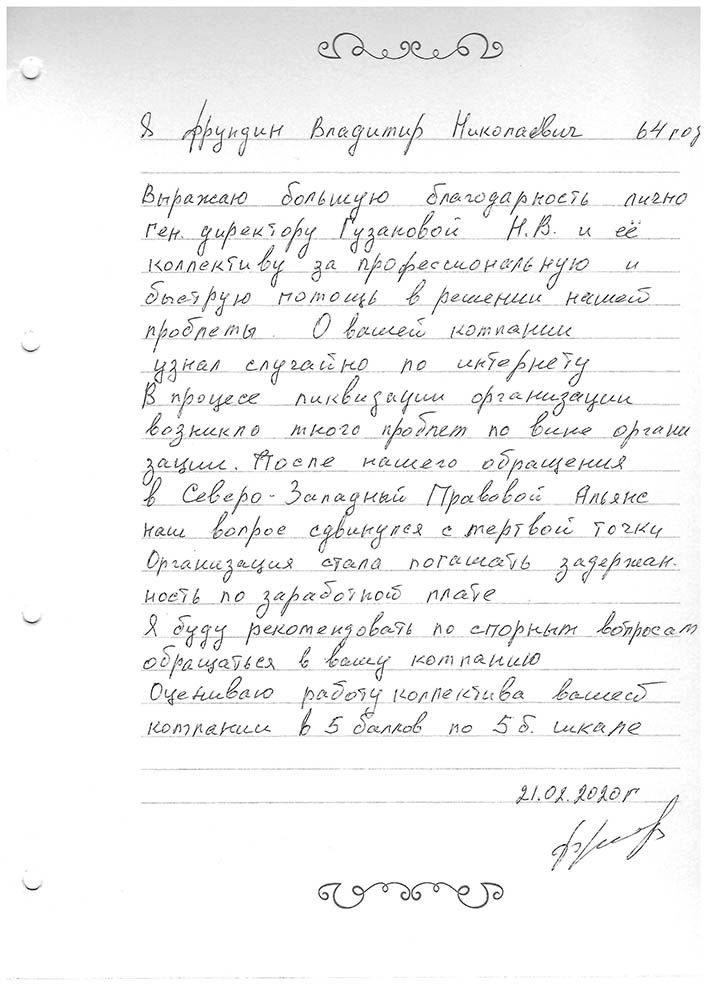 Я Фрундин Владимир Николаевич 64 год
Выражаю большую благодарность лично
Ген. директору Гузановой Н.В. и её
коллективу за профессиональную и
быструю помощь в решении нашей
проблемы. О вашей компании
узнал случайно по интернету
В процесе ликвизации организации
возникло много проблем по вине органи
зации. После нашего обращения
в Северо-Западный Правовой Альянс
наш вопрос сдвинулся с мертвой точки
Организация стала погашать задержан-
ность по заработной плате
Я буду рекомендовать по спорным вопросам
обращаться в вашу компанию
Оцениваю работу коллектива вашей
компании в 5 баллов по 5 б. шкале
21.02.2020г